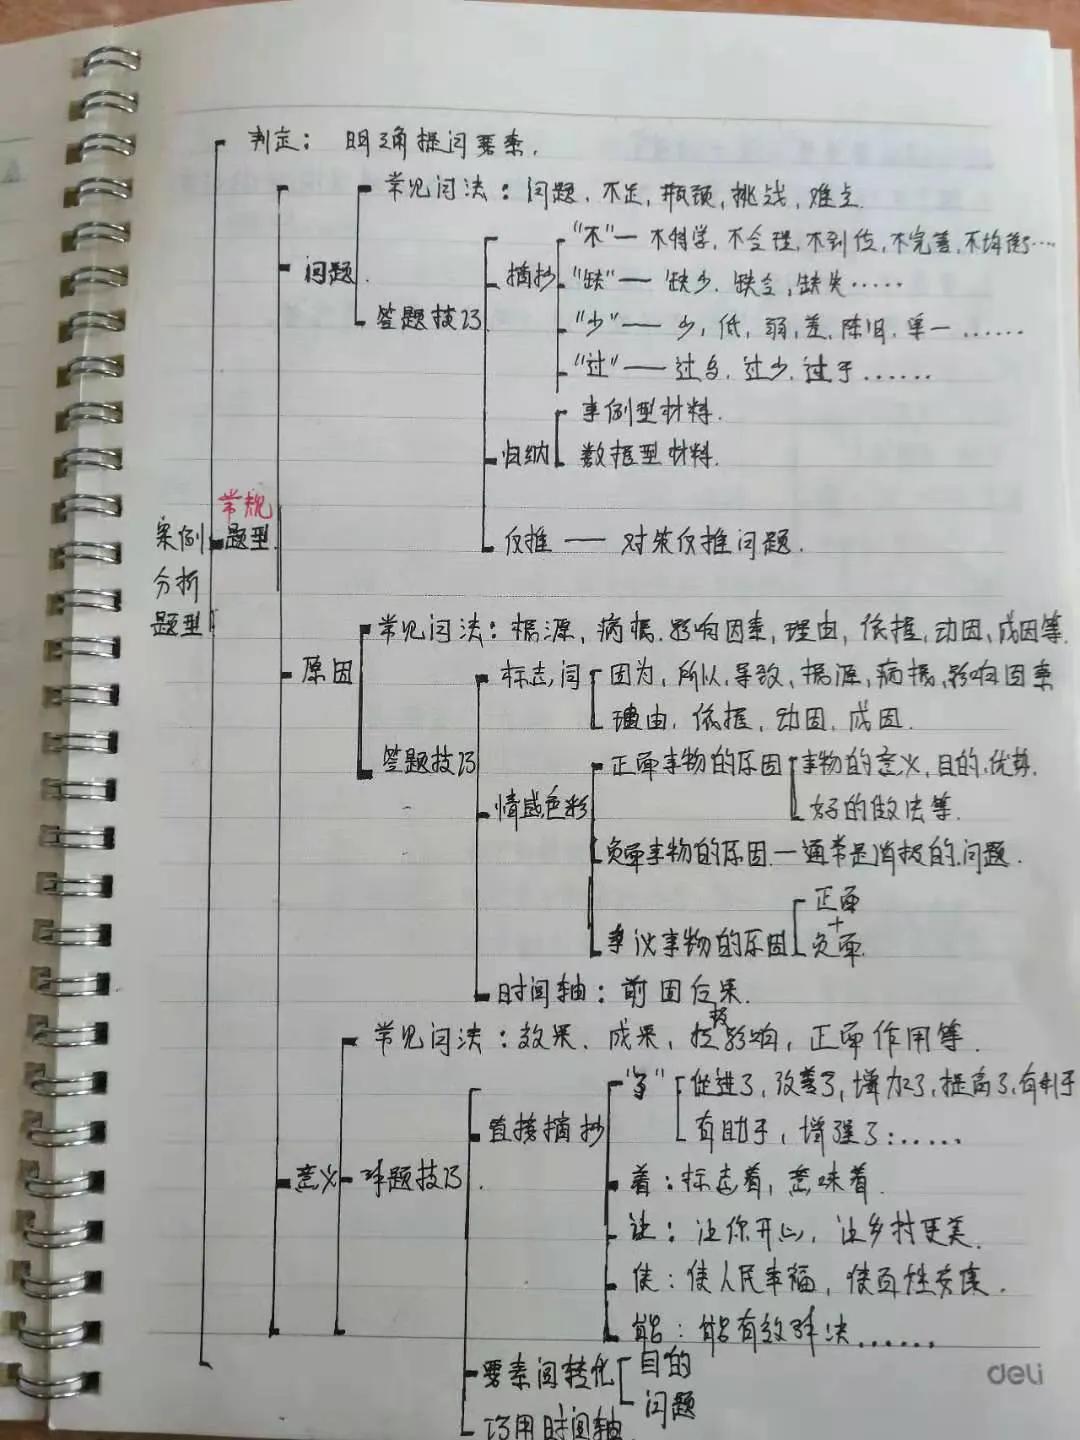 判定：明确提问要素.
常见问法：问题、不足,瓶颈,挑战,难点.
问题.
答题技巧
摘抄
"不"— 不科学,不合理,不到位,不完善,不均衡…
"缺"— 缺少.缺乏,缺失……
"少"— 少,低,弱,差,陈旧.单一……
"过"— 过多.过少.过于……
归纳
事例型材料.
数据型材料.
反推 — 对策反推问题.
常规
案例分析题型
题型.
原因
常见问法：根源,病根.影响因素,理由,依据,动因,成因等.
答题技巧
标志,问
因为,所以,导致,根源,病根,影响因素
理由,依据,动因,成因.
情感色彩
正面事物的原因
事物的意义,目的,优势.
好的做法等.
负面事物的原因—通常是消极的.问题.
争议事物的原因
正面
+
负面.
时间轴：前因后果.
意义
常见问法：效果、成果,积极影响,正面作用等.
解题技巧.
直接摘抄
"了"
促进了,改善了,增加了,提高了,有利于
有助于,增强了:……
着：标志着,意味着.
让：让你开心,让乡村更美.
使：使人民幸福,使百姓安康.
能：能有效解决……
要素间转化
目的
问题
巧用时间轴.
deli